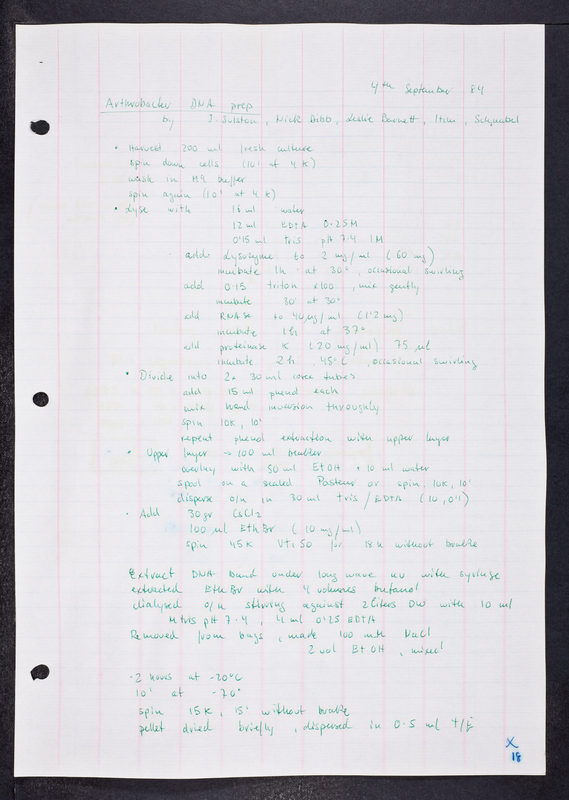 4th September 84
Arthrobacter DNA prep
by J. Sulston, Nick Dibb, Leslie Barnett, Schnabel
• Harvest 200 ml fresh culture
spin down cells (10' at 4 K)
wash in M9 buffer
spin again (10' at 4 K)
• Lyse with 16 ml water
12 ml EDTA 0.25M
0.15 ml Tris pH 7.4 1M
add Lysozyme to 2 mg/ml (60 mg)
incubate 1h at 30°, occasional swirling
add 0.15 triton x100, mix gently
incubate 30' at 30°
add RNAse to 40 µg/ml (1.2 mg)
incubate 1h at 37°
add proteinase K (20 mg/ml) 75 µl
incubate 2h, 45°C, occasional swirling
• Divide into 2x 30 ml corex tubes
add 15 ml phenol each
mix hand inversion throughly
spin 10K, 10'
repeat phenol extraction with upper layer
• Upper layer → 100 ml beaker
overlay with 50 ml EtOH + 10 ml water
spool on a sealed Pasteur or spin, 10K, 10'
disperse o/n in 30 ml tris/EDTA (10, 0.1)
• Add 30 gr CsCl2
100 µl EthBr (10 mg/ml)
spin 45K VTi 50 for 18 h without brake
Extract DNA band under long wave uv with syringe
extracted EthBr with 4 volumes butanol
dialysed o/n stirring against 2 liters DW with 10 ml
M tris pH 7.4, 4 ml 0.25 EDTA
Removed from bags, made 100 mM NaCl
2 vol EtOH, mixed
-2 hours at -20°C
10' at -70°
spin 15K, 15' without brake
pellet dried briefly, dispersed in 0.5 ml
X
18